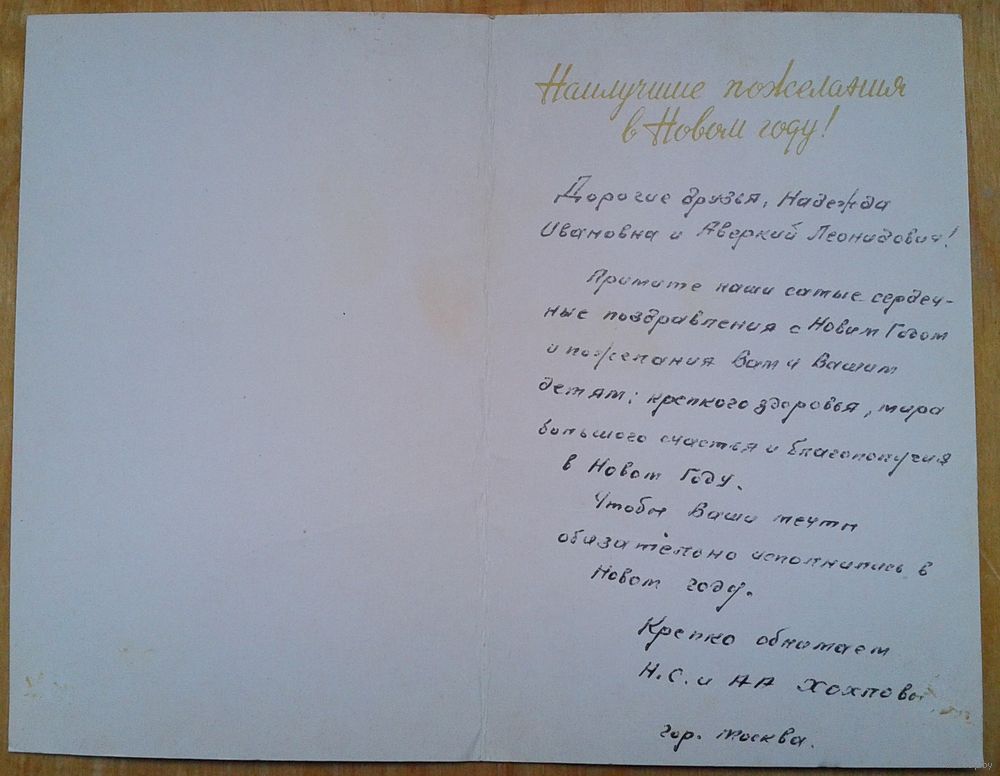 Наилучшие пожелания
в Новом году!
Дорогие друзья, Надежда
Ивановна и Аверкий Леонидович!
Примите наши самые сердеч-
ные поздравления с Новым Годом
и пожелания Вам и Вашим
детям: крепкого здоровья, мира
большого счастья и благополучия
в Новом Году.
Чтобы Ваши мечты
обязательно исполнились в
Новом году.
Крепко обнимаем
Н.С. и АА Хохловы
гор. Москва.